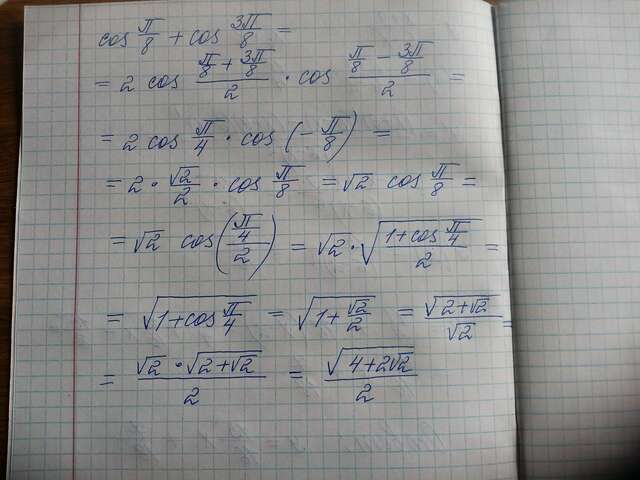 cos π/8 + cos 3π/8 =
= 2 cos (π/8 + 3π/8)/2 · cos (π/8 − 3π/8)/2 =
= 2 cos π/4 · cos (−π/8) =
= 2 · √2/2 · cos π/8 = √2 cos π/8 =
= √2 cos((π/4)/2) = √2 · √((1+cos π/4)/2) =
= √(1+cos π/4) = √(1+√2/2) = √(2+√2)/√2 =
= (√2 · √(2+√2))/2 = √(4+2√2)/2